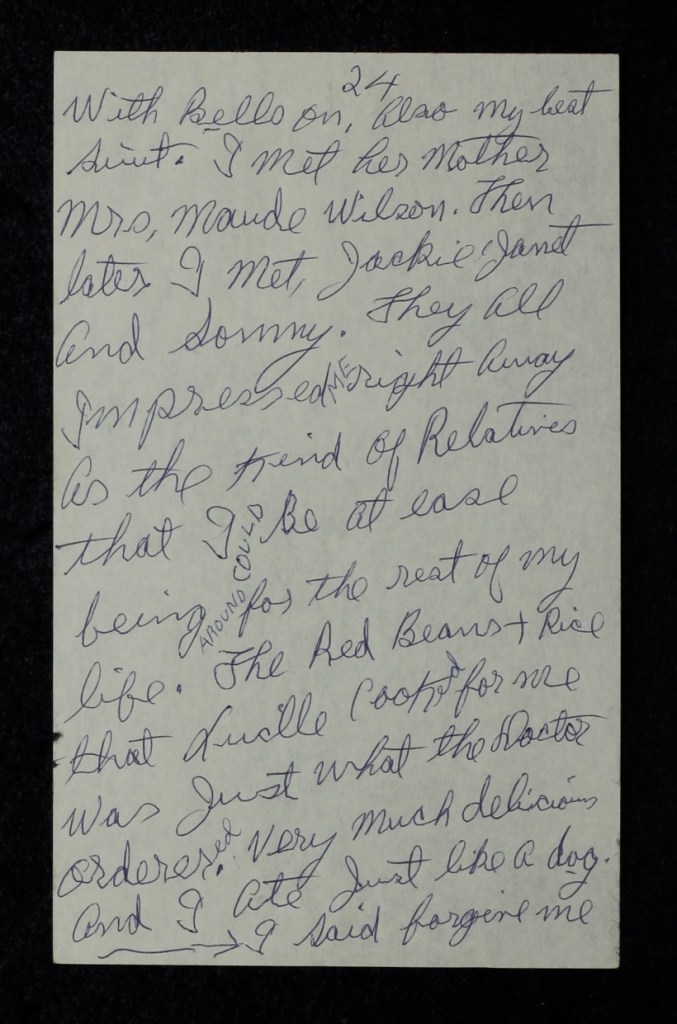 24
With Bells on, Also my best
Suit. I Met her Mother
Mrs, Maude Wilson. Then
later I Met, Jackie, Janet
And Sonny. They All
Impressed ME right Away
As the Kind of Relatives
that I COULD Be At ease
being AROUND for the rest of my
life. The Red Beans + Rice
that Lucille Cook'd for me
was Just what the Doctor
orderered. Very much delicious
And I Ate Just like a dog.
I said forgive me